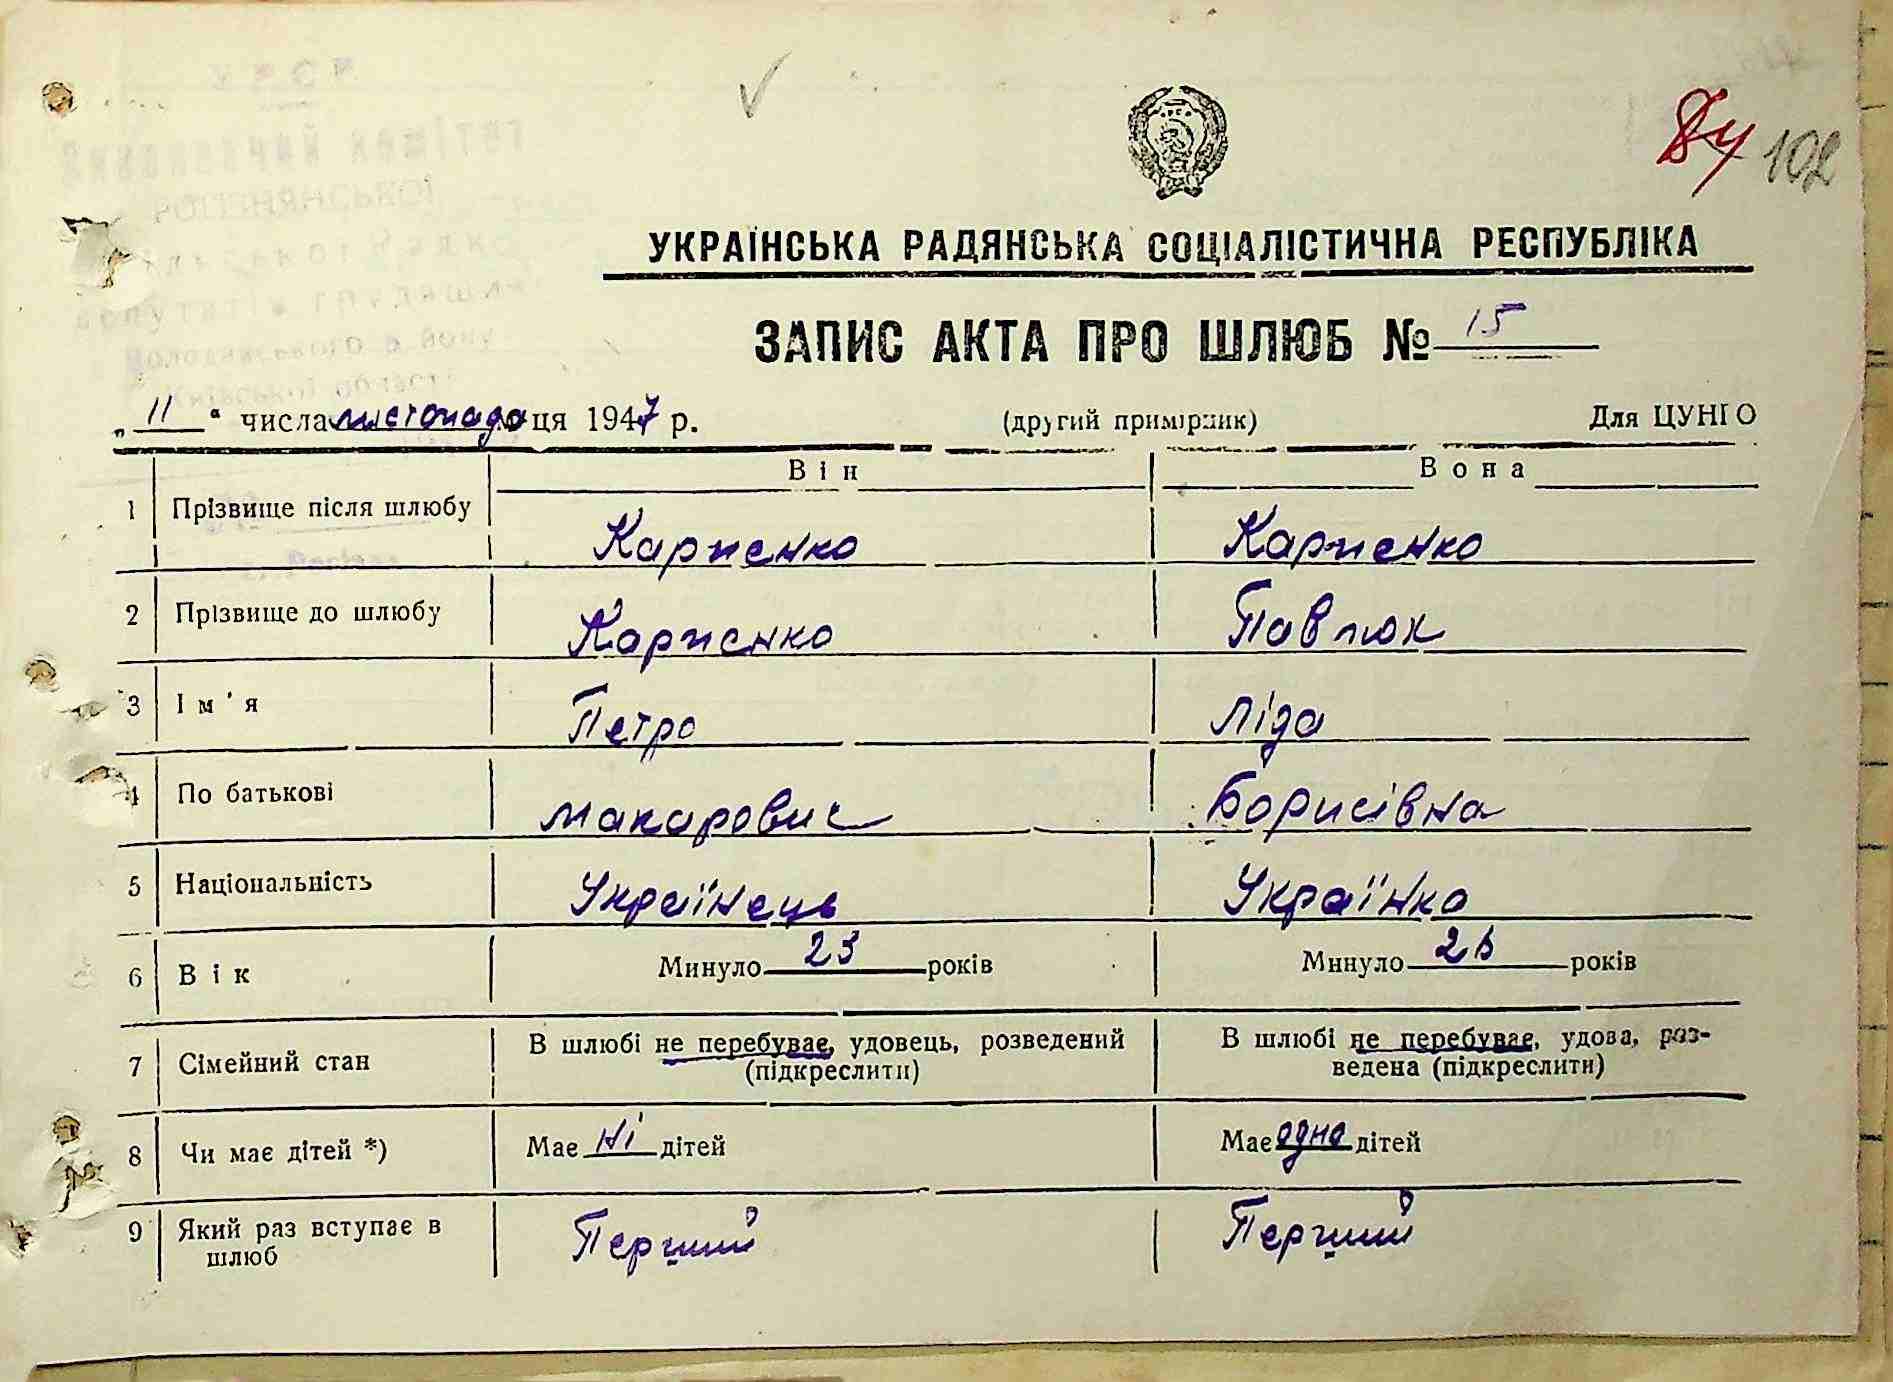 84 102
УКРАЇНСЬКА РАДЯНСЬКА СОЦІАЛІСТИЧНА РЕСПУБЛІКА
ЗАПИС АКТА ПРО ШЛЮБ № 15
„ 11 “ числа листопада ця 1947 р. (другий примірник) Для ЦУНГО
Він Вона
1 Прізвище після шлюбу Карпенко Карпенко
2 Прізвище до шлюбу Карпенко Павлюк
3 Ім'я Петро Ліда
4 По батькові Макарович Борисівна
5 Національність Українець Українка
6 Вік Минуло 23 років Минуло років
7 Сімейний стан В шлюбі не перебуває, удовець, розведений (підкреслити) В шлюбі не перебуває, удова, роз-
ведена (підкреслити)
8 Чи має дітей *) Має ні дітей Має одно дітей
9 Який раз вступає в шлюб Перший Перший